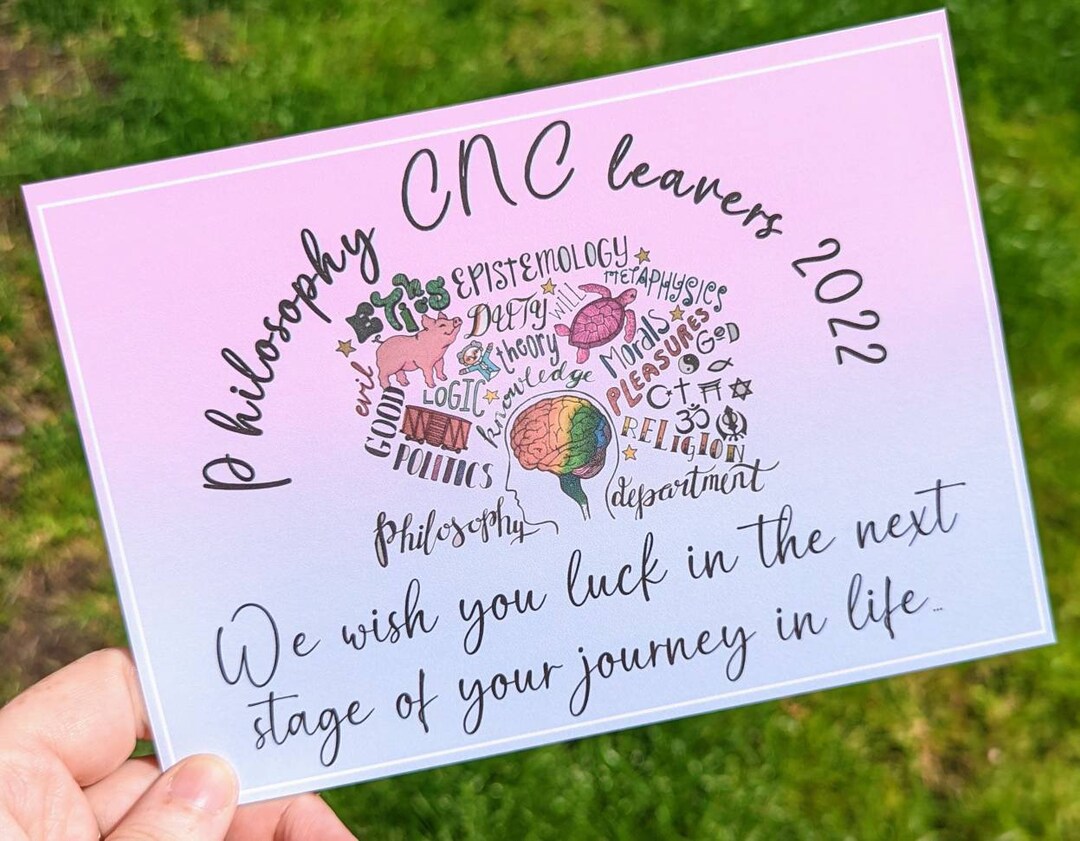 Philosophy CNC leavers 2022
EPISTEMOLOGY
METAPHYSICS
EThics
DUTY
WILL
theory
Morals
PLEASURES
GOD
evil
GOOD
LOGIC
knowledge
ॐ
RELIGION
POLITICS
philosophy
department
We wish you luck in the next
stage of your journey in life...